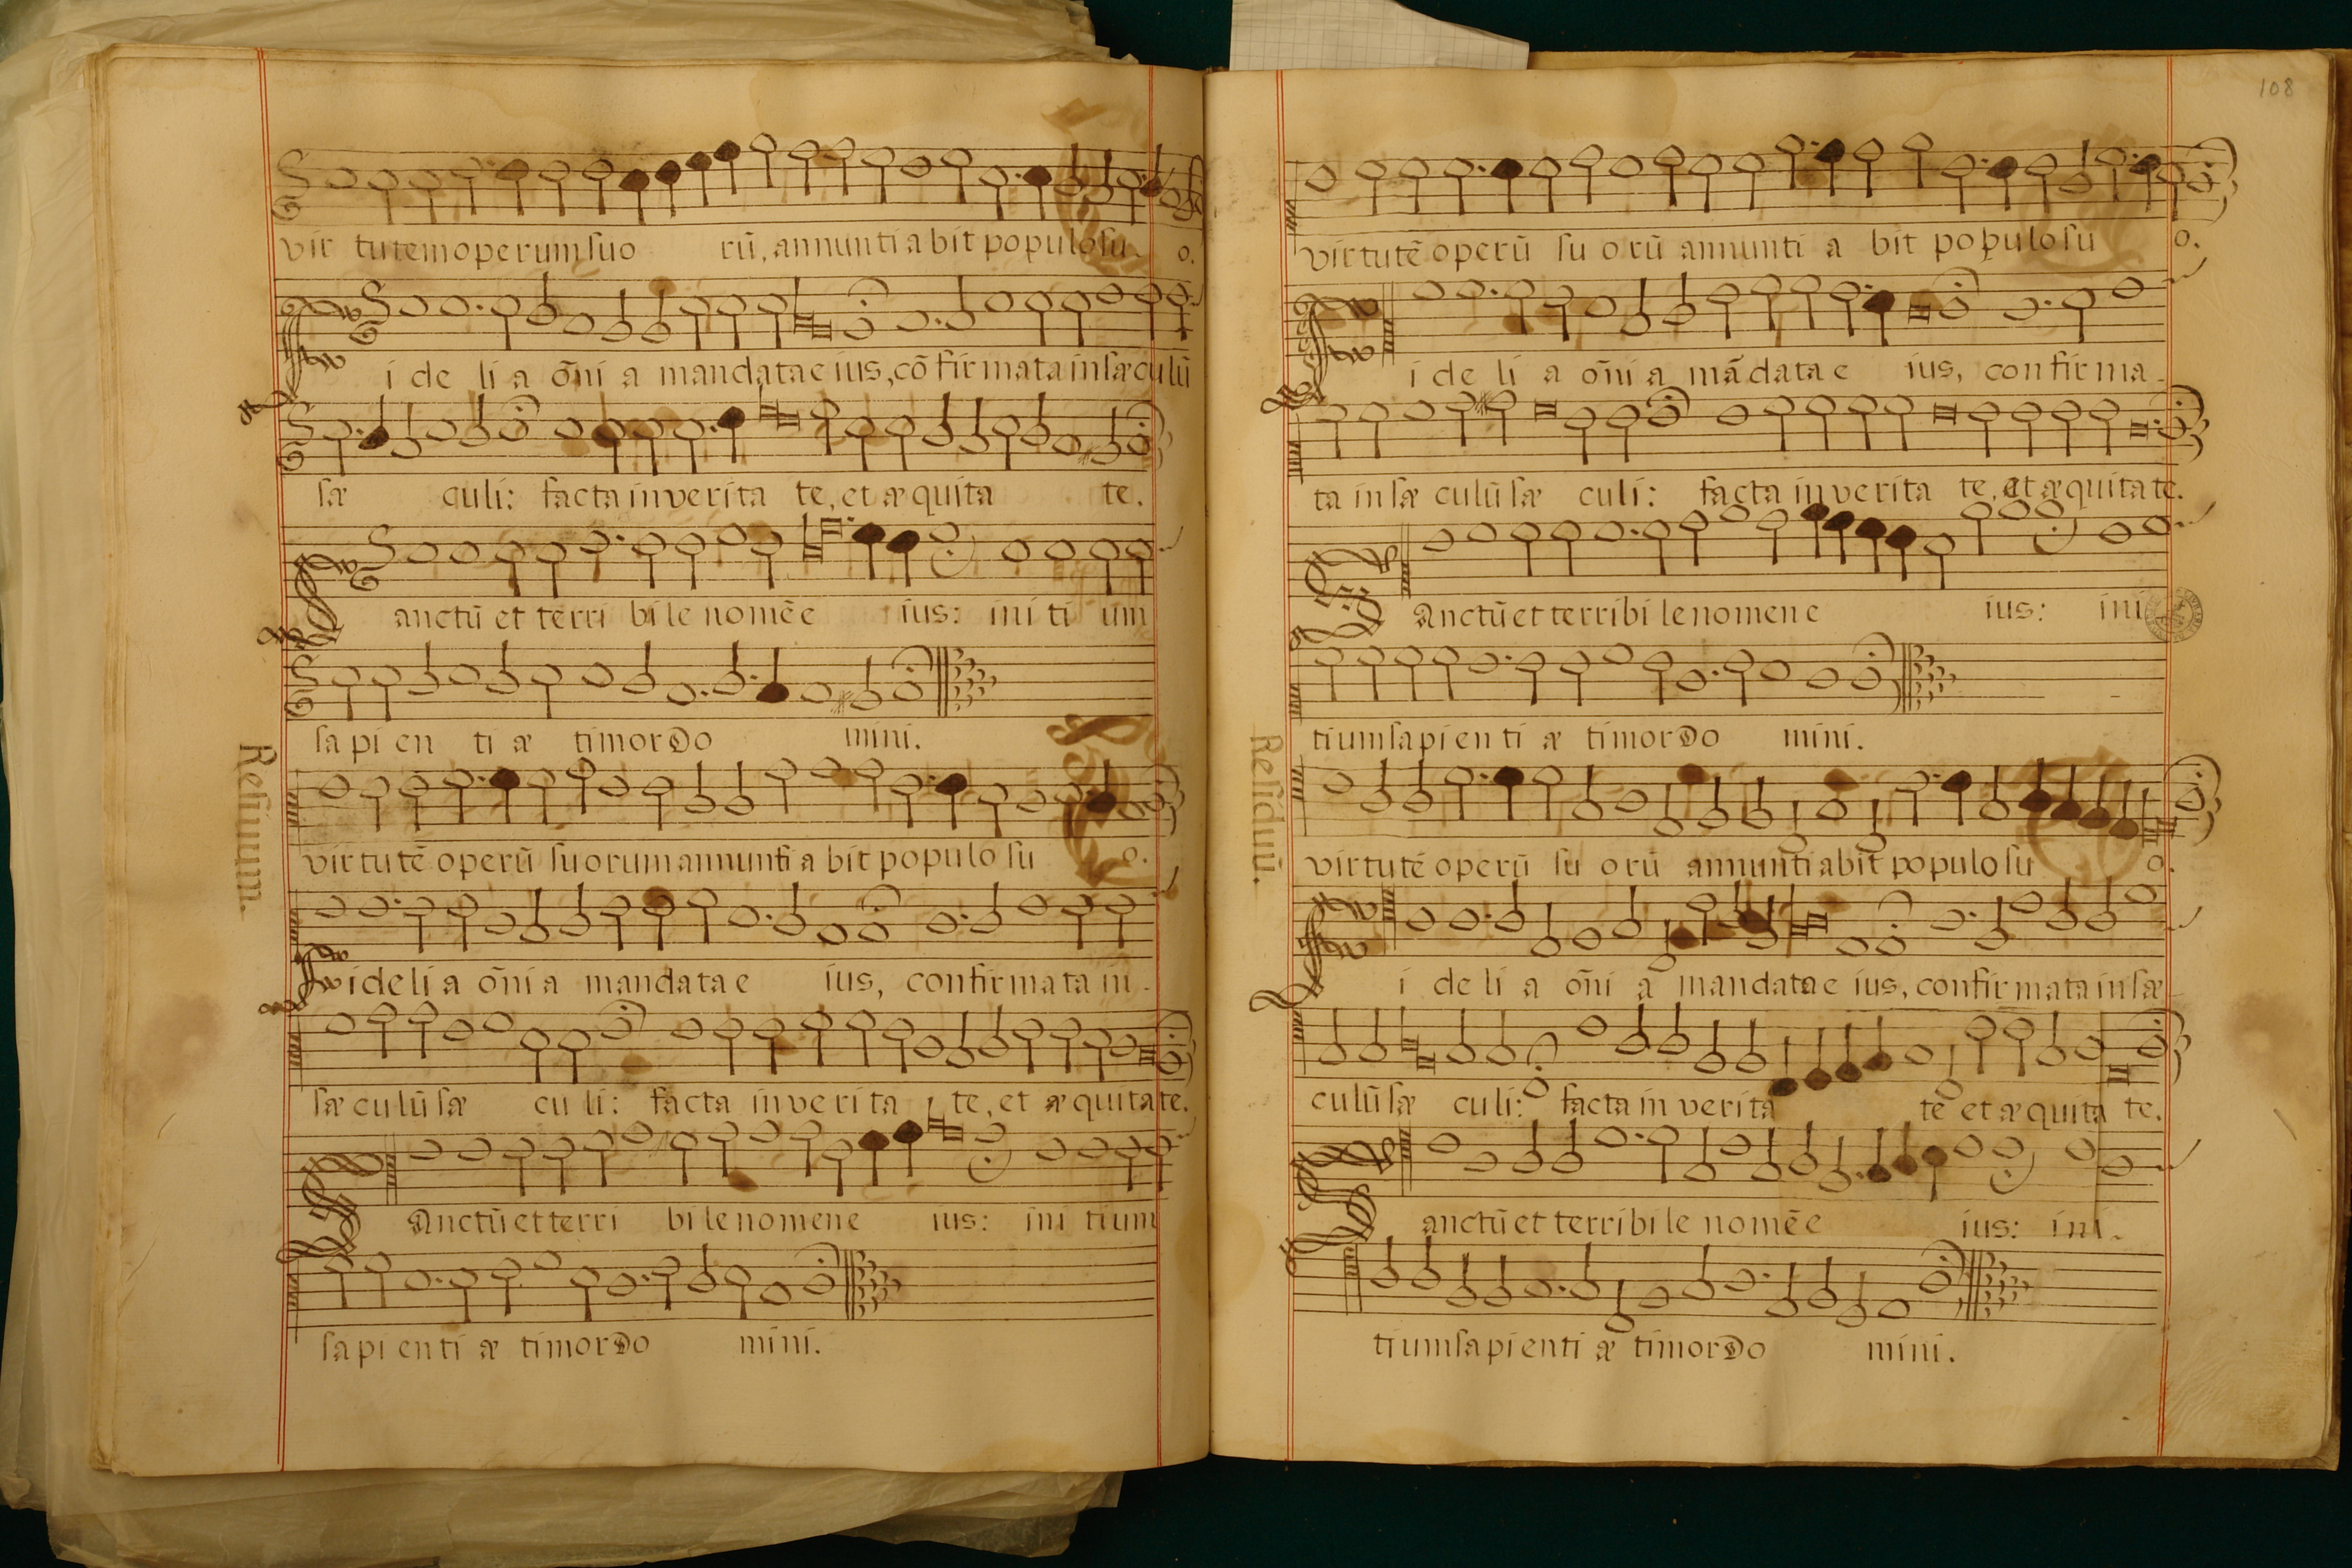 vir tutem operum suo rū, annunti a bit populo su o.
Fi de li a om̄i a mandata e ius, cō fir mata in sæculū
sæ culi: facta in verita te, et æquita te.
Sanctū et terri bi le nomē e ius: ini ti um
sa pi en ti æ timor Do mini.
Resiuum.
vir tu tē operū suorum annunti a bit populo su o.
Fideli a om̄i a mandata e ius, confirmata in
sæ culū sæ cu li: facta in verita te, et æquitate.
Sanctū et terri bi le nomen e ius: ini tium
sapienti æ timor Do mini.
108
virtutē operū su orū annunti a bit populo su o.
Fi de li a om̄i a mādata e ius, confirma
ta in sæ culū sæ culi: facta in verita te, et æquitate.
Sanctū et terribi le nomen e ius: ini
tium sapienti æ timor Do mini.
Residuū.
virtutē operū su orū annuntiabit populo su o.
Fi de li a om̄i a mandata e ius, confirmata in sæ
culū sæ culi: facta in verita te et æquita te.
Sanctū et terribi le nomē e ius: ini
tium sapienti æ timor Do mini.